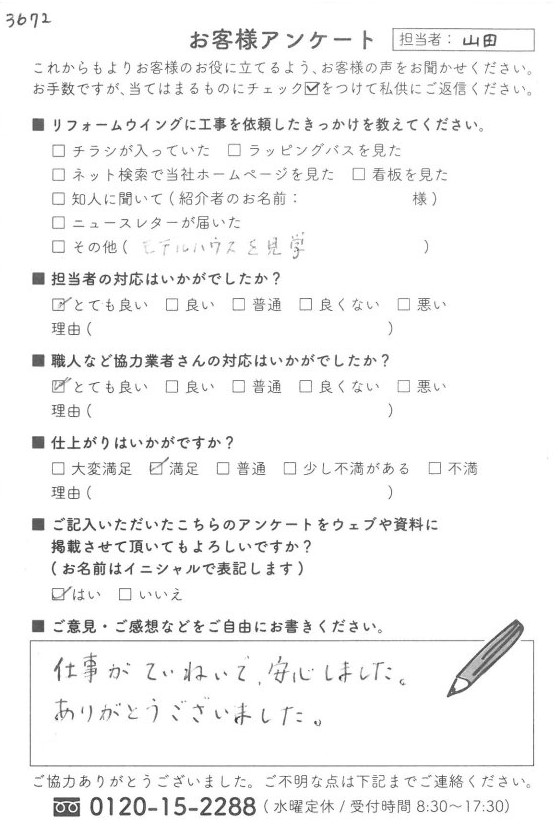 3672
お客様アンケート 担当者： 山田
これからもよりお客様のお役に立てるよう、お客様の声をお聞かせください。
お手数ですが、当てはまるものにチェック☑をつけて私供にご返信ください。
■ リフォームウイングに工事を依頼したきっかけを教えてください。
□ チラシが入っていた □ ラッピングバスを見た
□ ネット検索で当社ホームページを見た □ 看板を見た
□ 知人に聞いて（紹介者のお名前： 様）
□ ニュースレターが届いた
□ その他（ モデルハウスを見学 ）
■ 担当者の対応はいかがでしたか？
☑ とても良い □ 良い □ 普通 □ 良くない □ 悪い
理由（ ）
■ 職人など協力業者さんの対応はいかがでしたか？
☑ とても良い □ 良い □ 普通 □ 良くない □ 悪い
理由（ ）
■ 仕上がりはいかがですか？
□ 大変満足 ☑ 満足 □ 普通 □ 少し不満がある □ 不満
理由（ ）
■ ご記入いただいたこちらのアンケートをウェブや資料に
掲載させて頂いてもよろしいですか？
（お名前はイニシャルで表記します）
☑ はい □ いいえ
■ ご意見・ご感想などをご自由にお書きください。
仕事がていねいで、安心しました。
ありがとうございました。
ご協力ありがとうございました。ご不明な点は下記までご連絡ください。
0120-15-2288（水曜定休 / 受付時間 8:30～17:30）